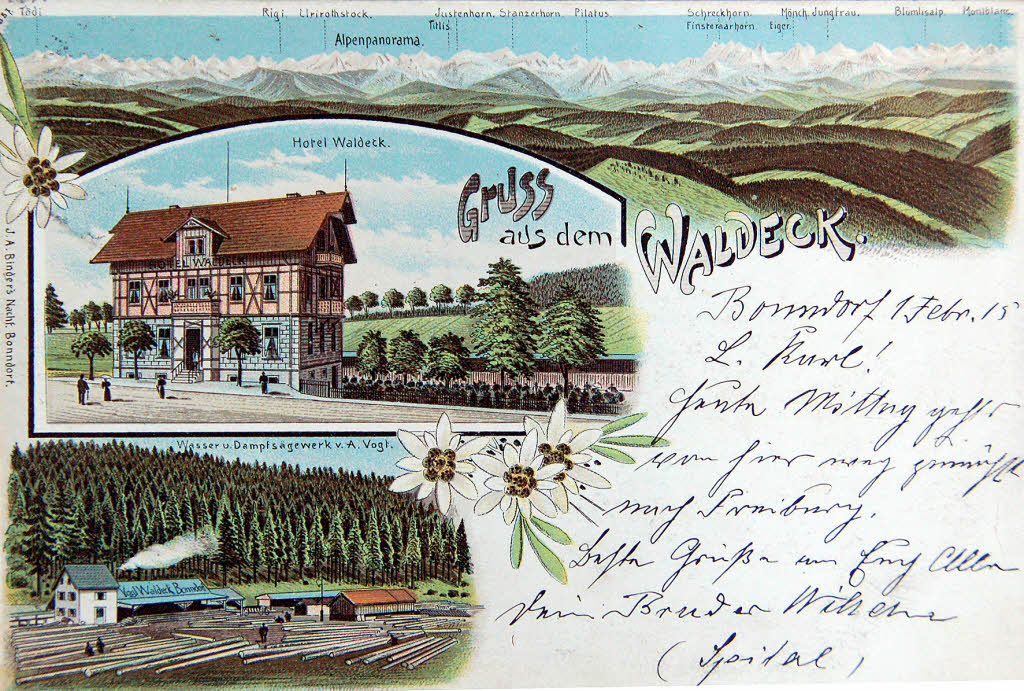 Tödi
Rigi
Urirothstock.
Justenhorn. Stanzerhorn. Pilatus.
Titlis
Schreckhorn. Mönch. Jungfrau.
Finsteraarhorn. Eiger.
Blümlisalp.
Montblanc
Alpenpanorama.
Hotel Waldeck.
HOTEL WALDECK
GRUSS
aus dem
WALDECK.
J. A. Binder's Nachf. Bonndorf.
Bonndorf 1 Febr. 15
L. Karl!
Heute Mittag gehts
von hier weg zunächst
nach Freiburg.
Beste Grüße an Euch Alle
Dein Bruder Wilhelm
(Spital)
Wasser u. Dampfsägewerk v. A. Vogt.
Vogt Waldeck Bonndorf